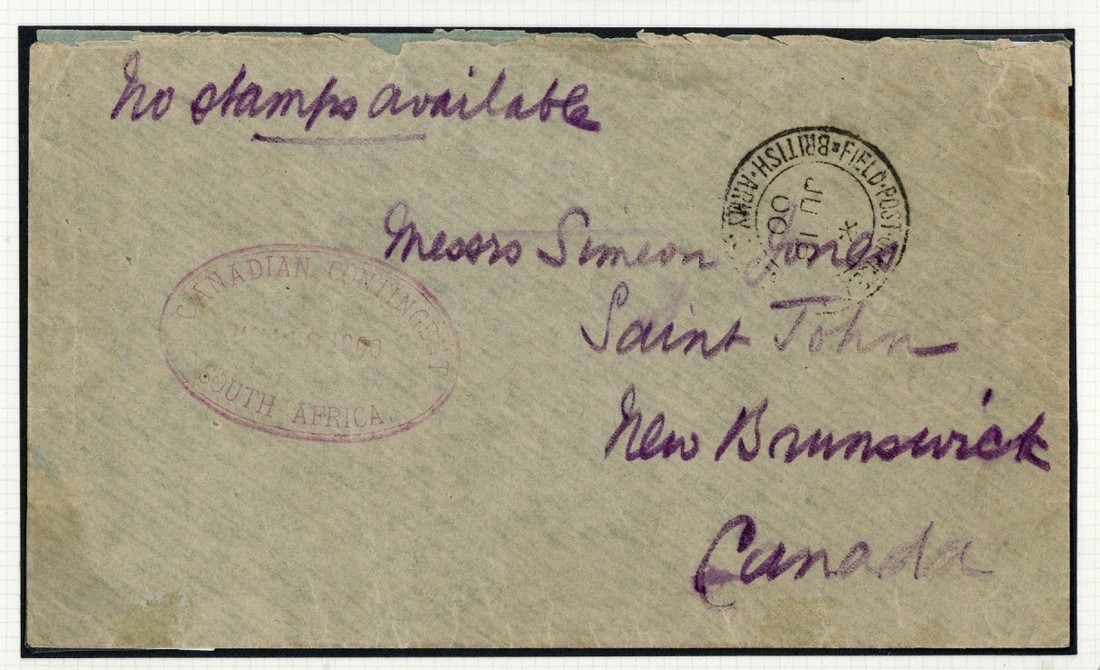 No stamps available
FIELD·POST
BRITISH·ARMY
JU 16
00
Messrs Simeon Jones
Saint John
New Brunswick
Canada
CANADIAN CONTINGENT
SOUTH AFRICA.